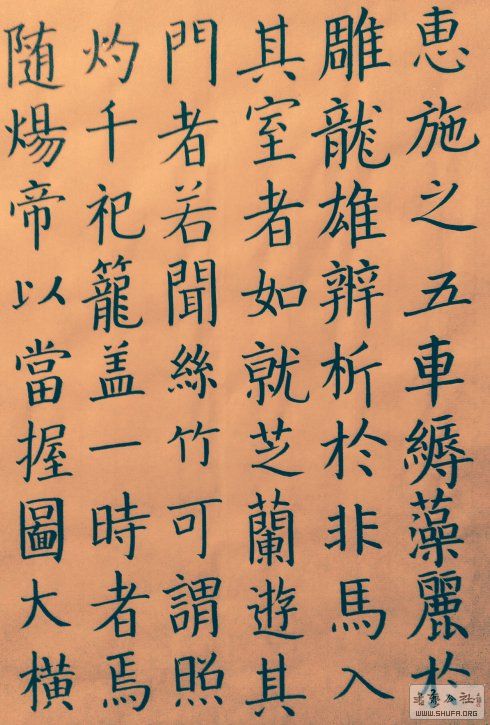 恵施之五車縟藻麗於
雕龍雄辨析於非馬入
其室者如就芝蘭遊其
門者若聞絲竹可謂照
灼千祀籠盖一時者焉
随煬帝以當握圖大橫
WWW.SHUFA.ORG